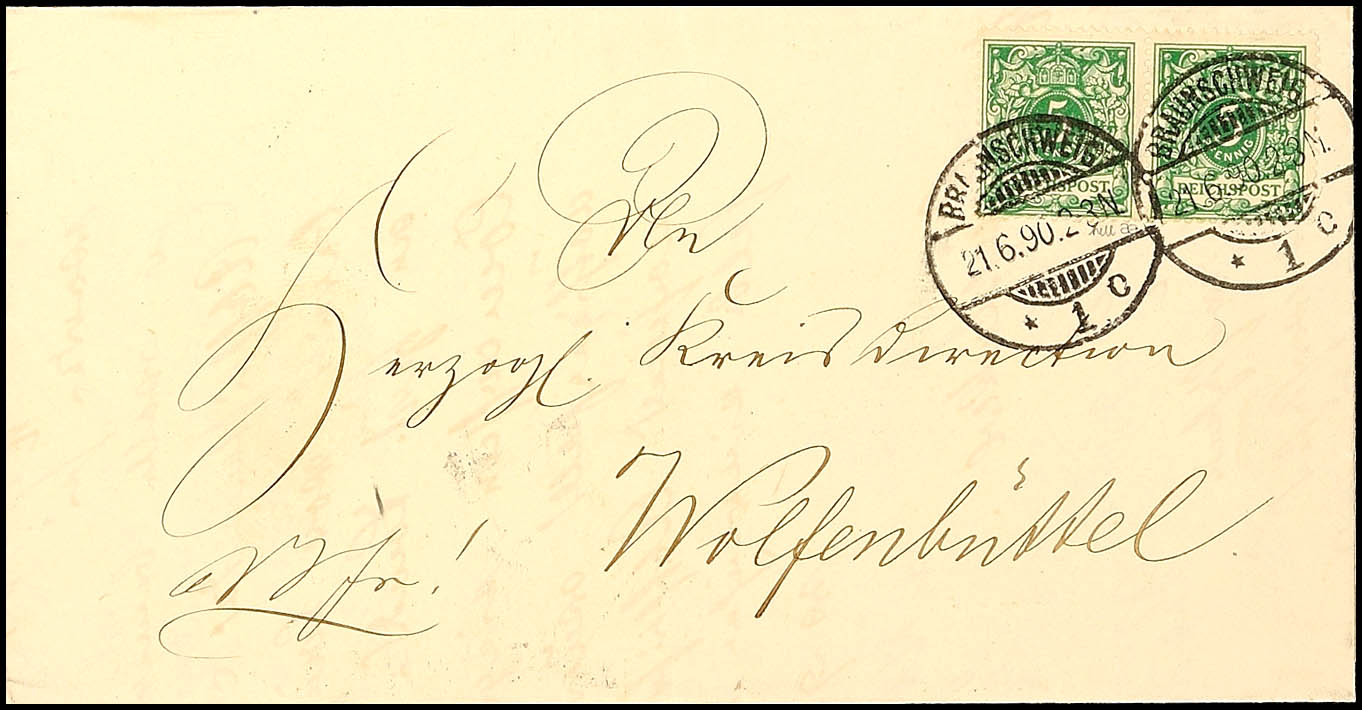 5 5
PFENNIG
REICHSPOST REICHSPOST
BRAUNSCHWEIG
21.6.90.2-3N.
* 1 c
BRAUNSCHWEIG
21.6.90.2-3N.
* 1 c
An
Herzogl. Kreisdirection
Wolfenbüttel.